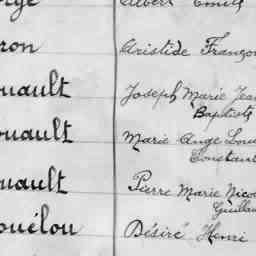 Albert Emile
Aristide Franço
ouault Joseph Marie Jea
Baptiste
ouault Marie Ange Lou
Constant
ouault Pierre Marie Nico
Guillau
ouélou Désiré Henri